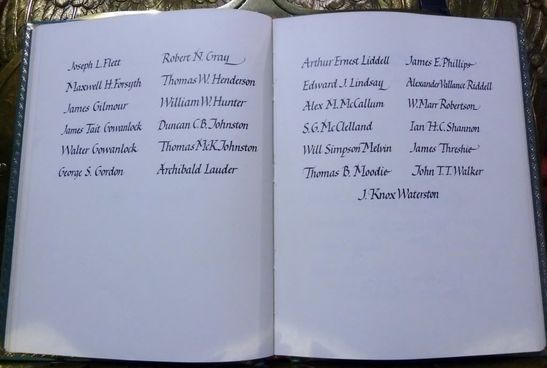 Joseph L. Flett
Maxwell H. Forsyth
James Gilmour
James Tait Gowanlock
Walter Gowanlock
George S. Gordon
Robert N. Gray
Thomas W. Henderson
William W. Hunter
Duncan C.B. Johnston
Thomas McK. Johnston
Archibald Lauder
Arthur Ernest Liddell
Edward J. Lindsay
Alex M. McCallum
S.G. McClelland
Will Simpson Melvin
Thomas B. Moodie
James E. Phillips
Alexander Vallance Riddell
W. Marr Robertson
Ian H.C. Shannon
James Threshie
John T.T. Walker
J. Knox Waterston